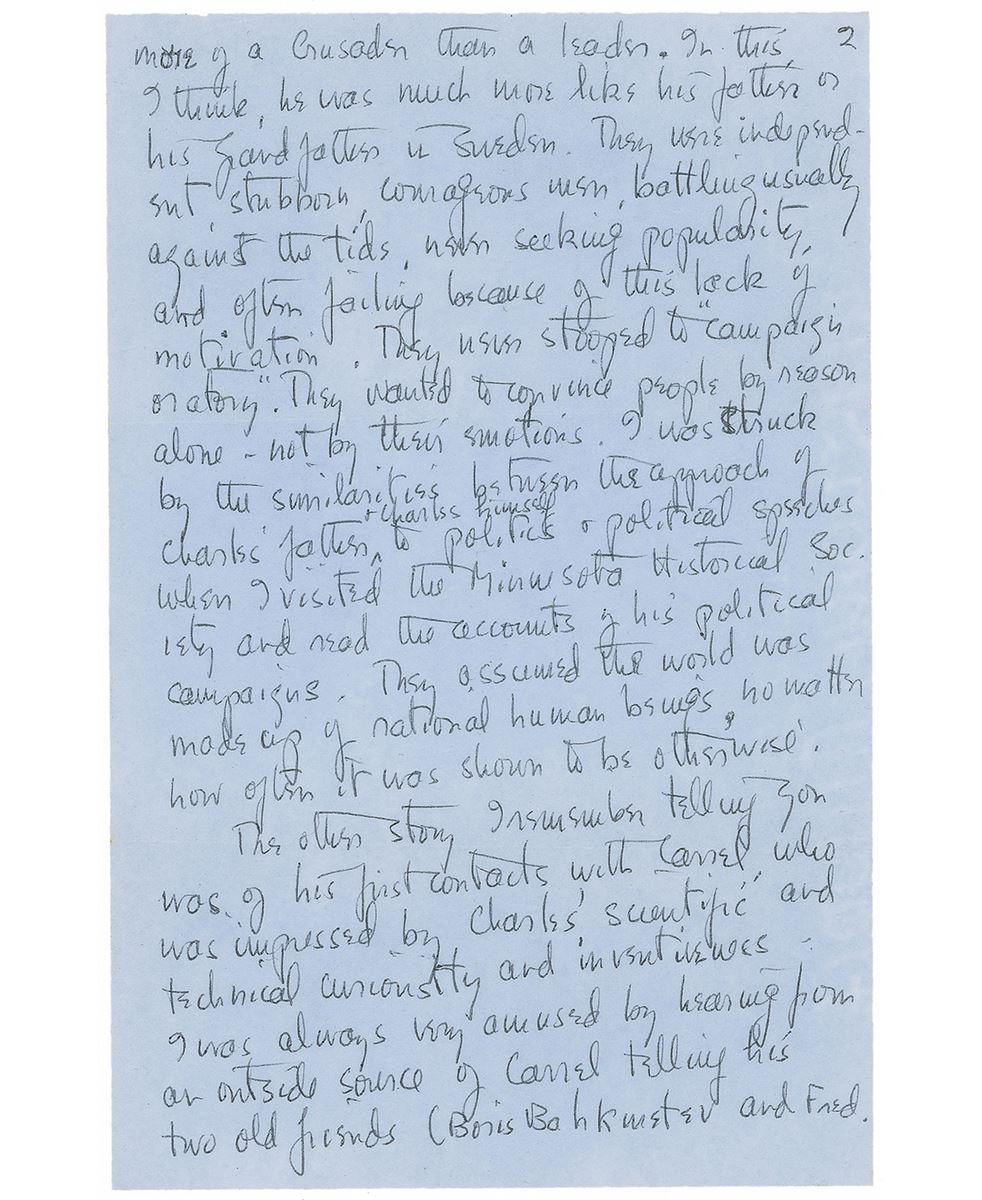 more of a Crusader than a leader. In this, 2
I think, he was much more like his father or
his grandfather in Sweden. They were independ-
ent, stubborn, courageous men, battling usually
against the tide, never seeking popularity,
and often failing because of this lack of
motivation. They never stooped to "campaign
oratory". They wanted to convince people by reason
alone - not by their emotions. I was struck
by the similarities between the approach of
+ Charles himself
Charles' father to politics & political speeches
when I visited the Minnesota Historical Soc.
iety and read the accounts of his political
campaigns. They assumed the world was
made up of rational human beings, no matter
how often it was shown to be otherwise.
The other story I remember telling you
was of his first contacts with Carrel who
was impressed by Charles' "scientific" and
technical curiosity and inventiveness -
I was always very amused by hearing from
an outside source of Carrel telling his
two old friends (Boris Bahkmetev and Fred.